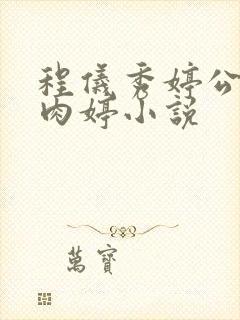 程儀秀婷公
肉婷小說
萬寶